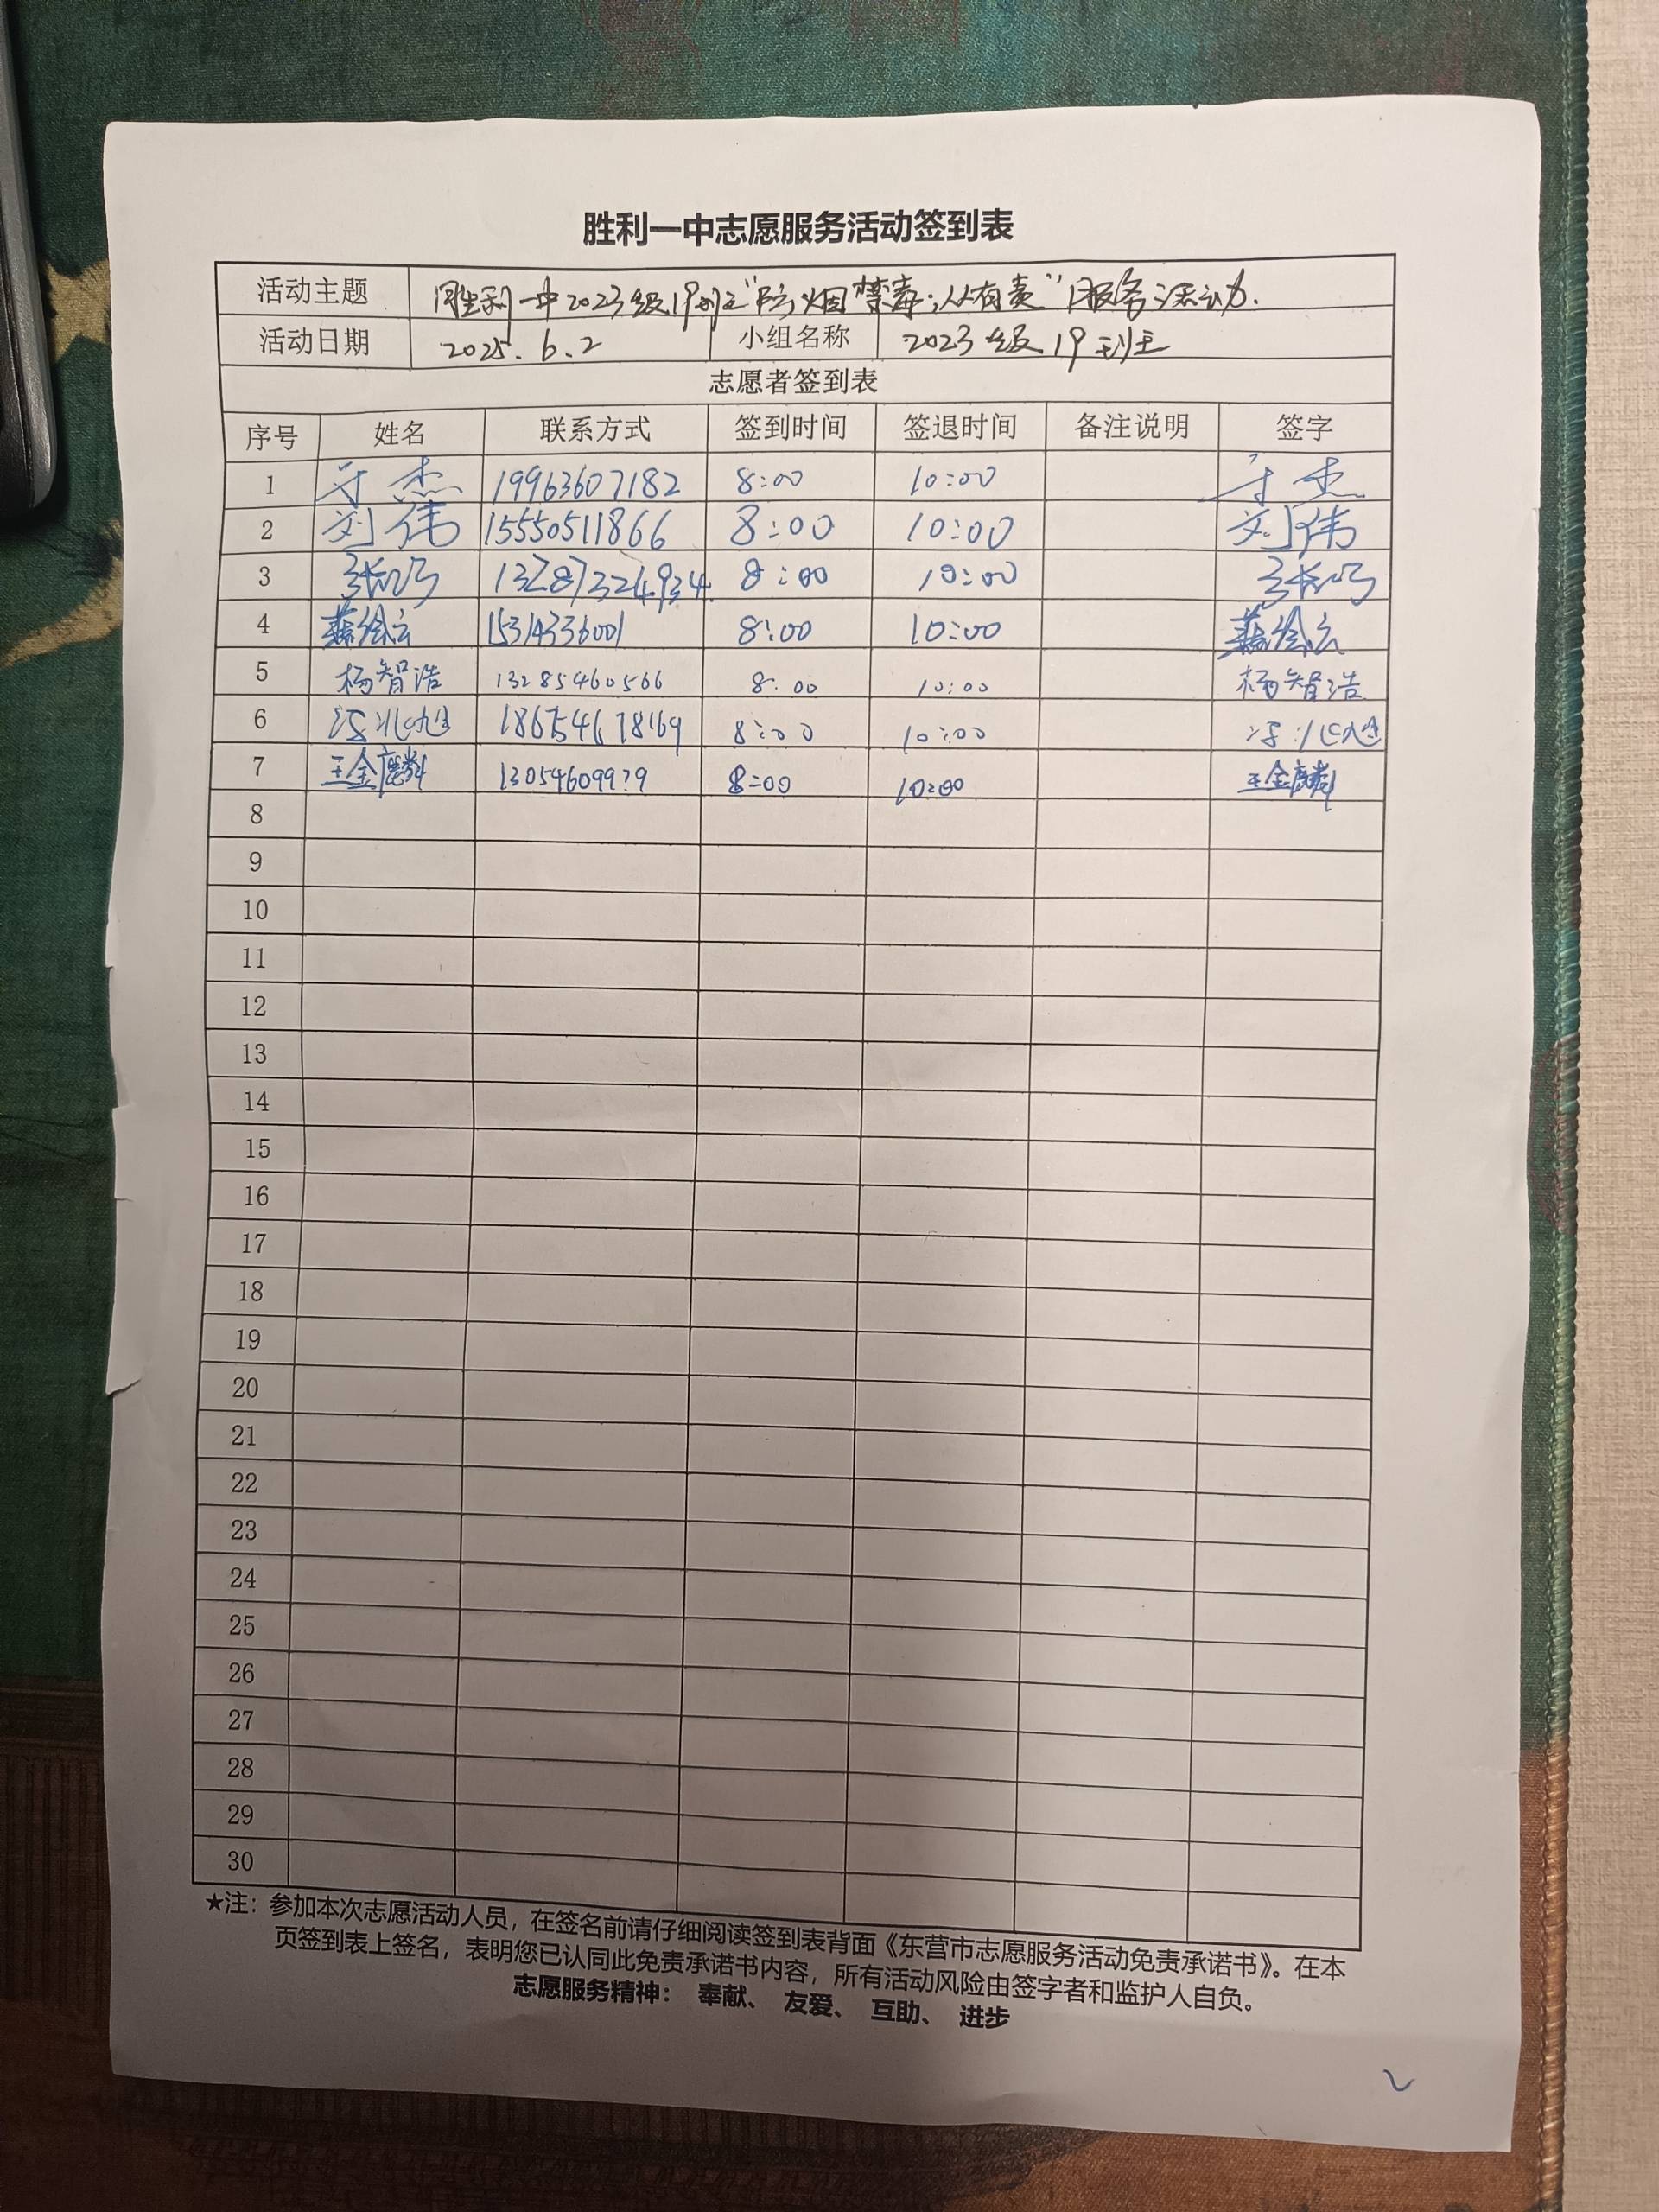 胜利一中志愿服务活动签到表
活动主题 胜利一中2023级19班"防烟禁毒,从有责"服务活动.
活动日期 2025.6.2 小组名称 2023级19班
志愿者签到表
序号 姓名 联系方式 签到时间 签退时间 备注说明 签字
1 于杰 19963607182 8:00 10:00 于杰
2 刘伟 15550511866 8:00 10:00 刘伟
3 13287324934 8:00 10:00
4 15314336001 8:00 10:00
5 杨智浩 13285460566 8:00 10:00 杨智浩
6 8:00 10:00
7 王金麟 8:00 10:00 王金麟
8
9
10
11
12
13
14
15
16
17
18
19
20
21
22
23
24
25
26
27
28
29
30
★注：参加本次志愿活动人员，在签名前请仔细阅读签到表背面《东营市志愿服务活动免责承诺书》。在本
页签到表上签名，表明您已认同此免责承诺书内容，所有活动风险由签字者和监护人自负。
志愿服务精神： 奉献、 友爱、 互助、 进步